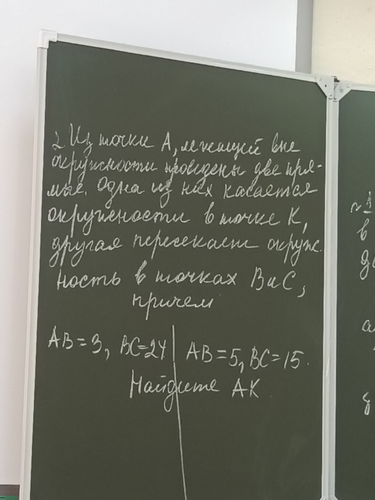 2 Из точки А, лежащей вне
окружности проведены две пря-
мые. Одна из них касается
окружности в точке К,
другая пересекает окруж-
ность в точках В и С,
причем
АВ=3, ВС=24 | АВ=5, ВС=15.
Найдите АК